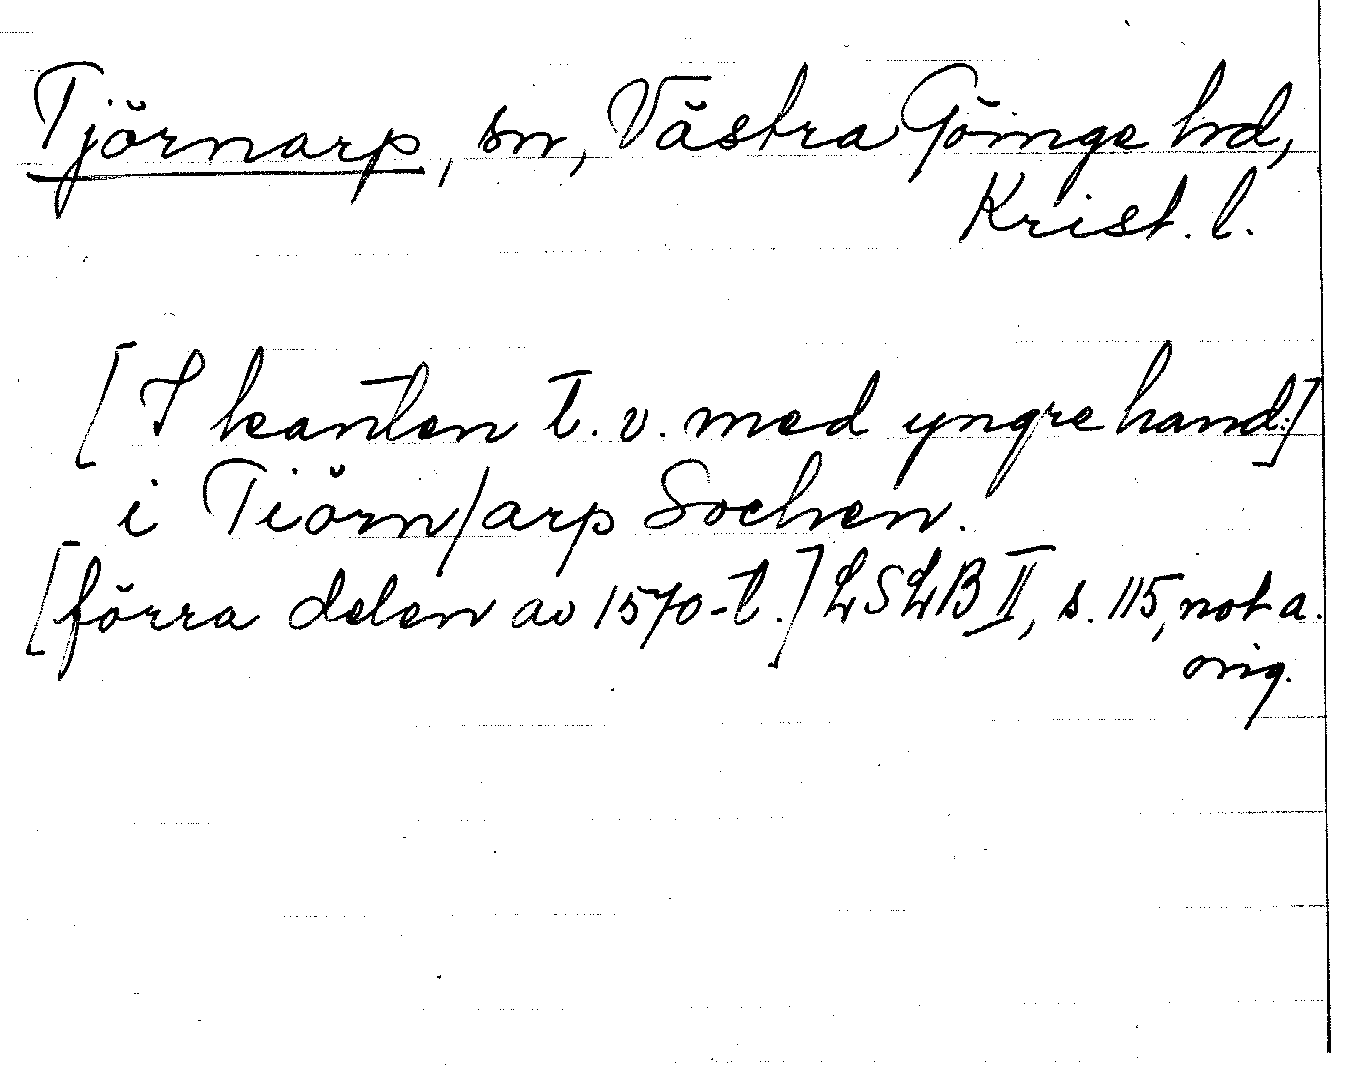 Tjörnarp, sn, Västra Göinge hd,
Krist. l.
[I kanten t. v. med yngre hand:]
i Tiörn/arp Sochen.
[förra delen av 1570-t.] LSLB II, s. 115, not a.
orig.